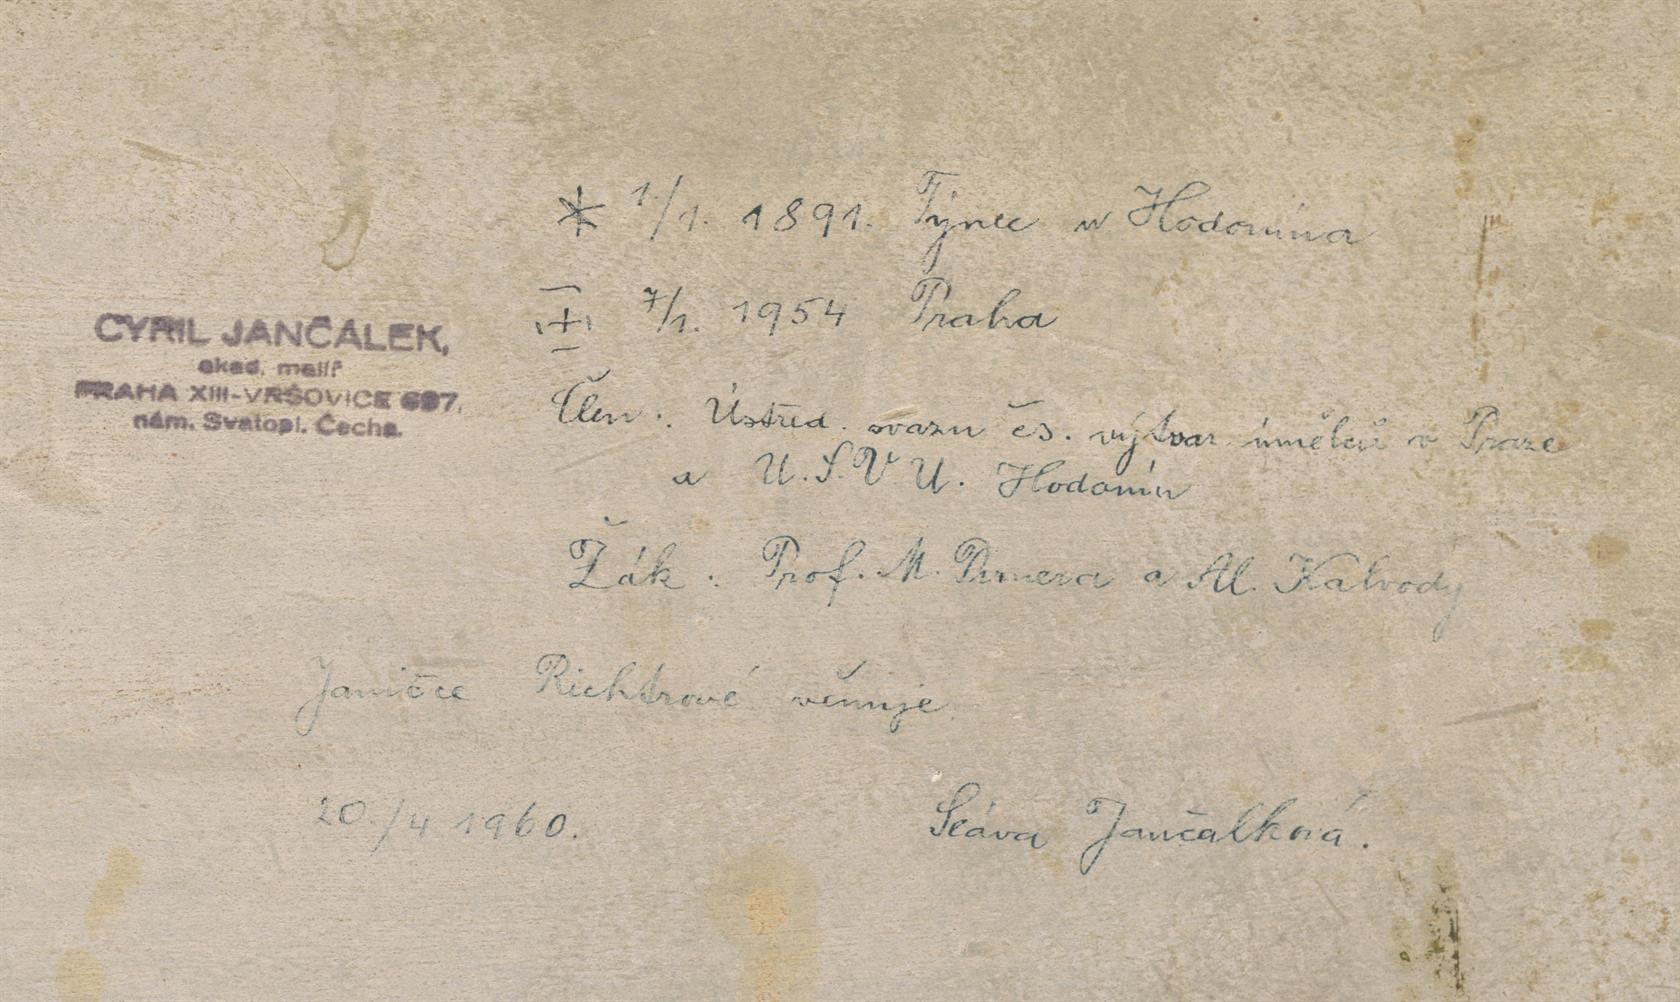 CYRIL JANČÁLEK,
akad. malíř
PRAHA XIII-VRŠOVICE 697,
nám. Svatopl. Čecha.
* 1./1. 1891. Týnec u Hodonína
+ 7/1. 1954 Praha
Člen: Ústřed. svazu čs. výtvar. umělců v Praze
a U.S.V.U. Hodonín
Žák: Prof. M. Pirnera a Al. Kalvody
Janičce Richtrové věnuje
20./4 1960.
Sláva Jančálková.